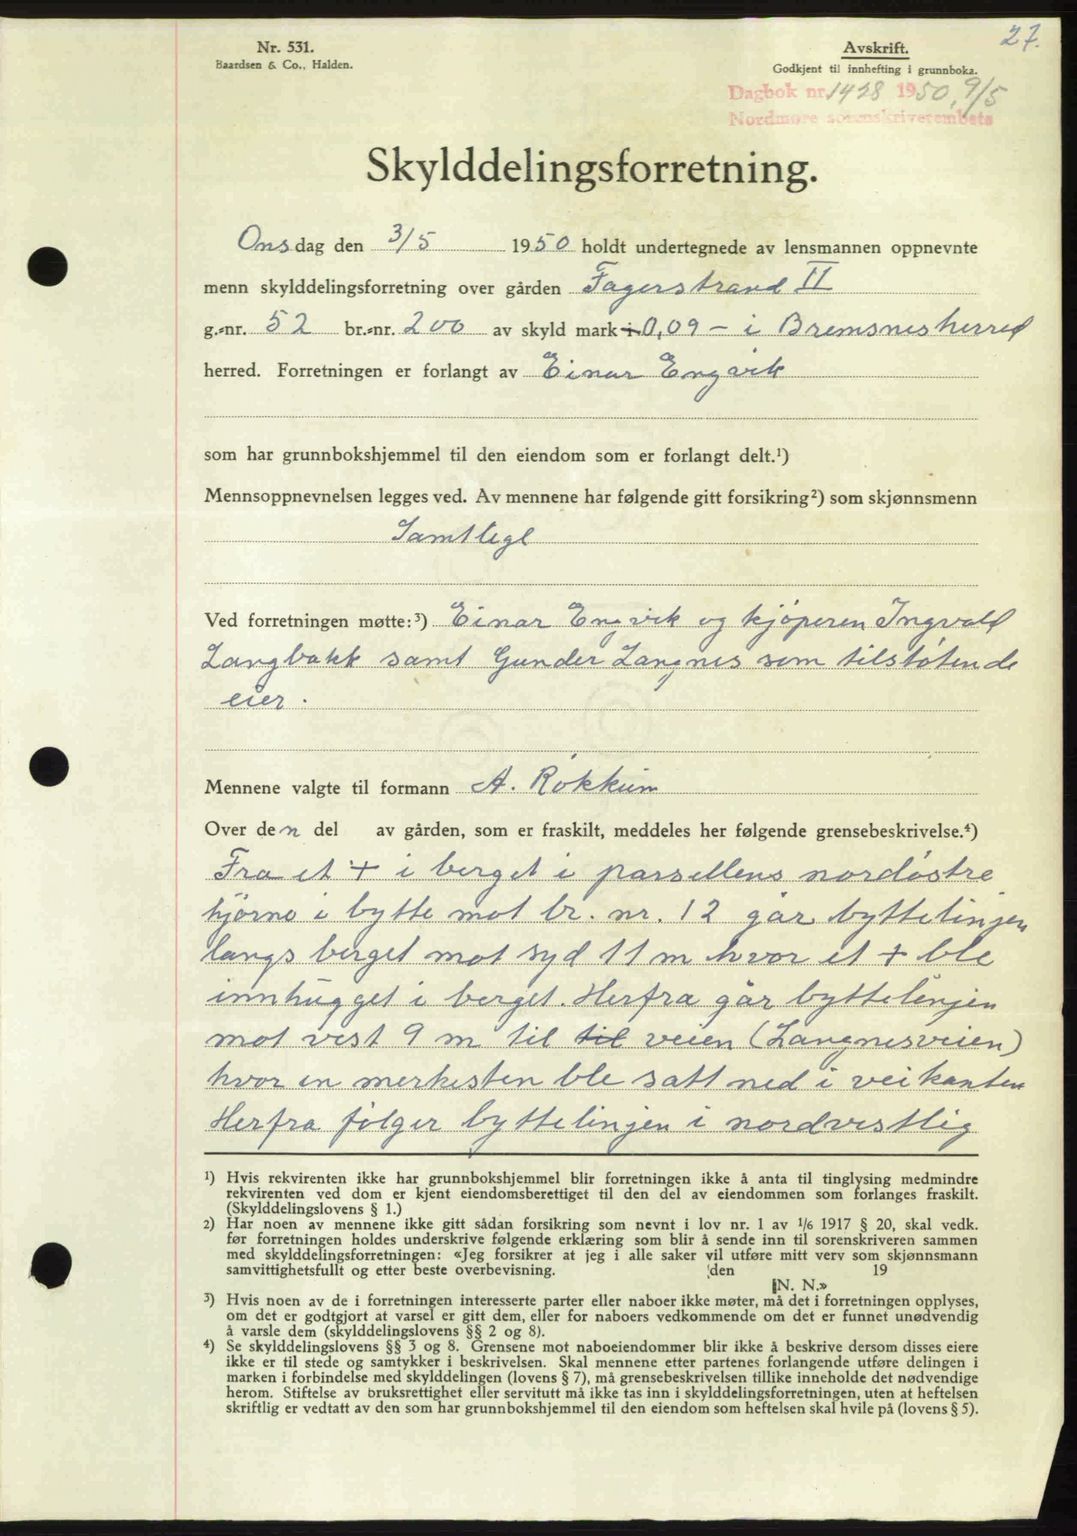 27.
Nr. 531.
Baardsen & Co., Halden.
Avskrift.
Godkjent til innhefting i grunnboka.
Dagbok nr. 1428 1950, 9/5
Nordmøre sorenskriverembete
Skylddelingsforretning.
Onsdag den 3/5 1950 holdt undertegnede av lensmannen oppnevnte
menn skylddelingsforretning over gården Fagerstrand II
g.-nr. 52 br.-nr. 200 av skyld mark i 0,09 – i Bremsnes herred
herred. Forretningen er forlangt av Einar Engvik
som har grunnbokshjemmel til den eiendom som er forlangt delt.¹)
Mennsoppnevnelsen legges ved. Av mennene har følgende gitt forsikring²) som skjønnsmenn
Samtlige
Ved forretningen møtte:³) Einar Engvik og kjøperen Ingvald
Langbakk samt Gunder Langnes som tilstøtende
eier.
Mennene valgte til formann A. Røkkum
Over den del av gården, som er fraskilt, meddeles her følgende grensebeskrivelse.⁴)
Fra et + i berget i parsellens nordøstre
hjørne i bytte mot br. nr. 12 går byttelinjen
langs berget mot syd 11 m hvor et + ble
innhugget i berget. Herfra går byttelinjen
mot vest 9 m til til veien (Langnesveien)
hvor en merkesten ble satt ned i veikanten
Herfra følger byttelinjen i nordvestlig
¹) Hvis rekvirenten ikke har grunnbokshjemmel blir forretningen ikke å anta til tinglysing medmindre
rekvirenten ved dom er kjent eiendomsberettiget til den del av eiendommen som forlanges fraskilt.
(Skylddelingslovens § 1.)
²) Har noen av mennene ikke gitt sådan forsikring som nevnt i lov nr. 1 av 1/6 1917 § 20, skal vedk.
før forretningen holdes underskrive følgende erklæring som blir å sende inn til sorenskriveren sammen
med skylddelingsforretningen: «Jeg forsikrer at jeg i alle saker vil utføre mitt verv som skjønnsmann
samvittighetsfullt og etter beste overbevisning. den 19
N. N.»
³) Hvis noen av de i forretningen interesserte parter eller naboer ikke møter, må det i forretningen opplyses,
om det er godtgjort at varsel er gitt dem, eller for naboers vedkommende om det er funnet unødvendig
å varsle dem (skylddelingslovens §§ 2 og 8).
⁴) Se skylddelingslovens §§ 3 og 8. Grensene mot naboeiendommer blir ikke å beskrive dersom disses eiere
ikke er til stede og samtykker i beskrivelsen. Skal mennene etter partenes forlangende utføre delingen i
marken i forbindelse med skylddelingen (lovens § 7), må grensebeskrivelsen tillike inneholde det nødvendige
herom. Stiftelse av bruksrettighet eller servitutt må ikke tas inn i skylddelingsforretningen, uten at heftelsen
skriftlig er vedtatt av den som har grunnbokshjemmel til den eiendom som heftelsen skal hvile på (lovens § 5).